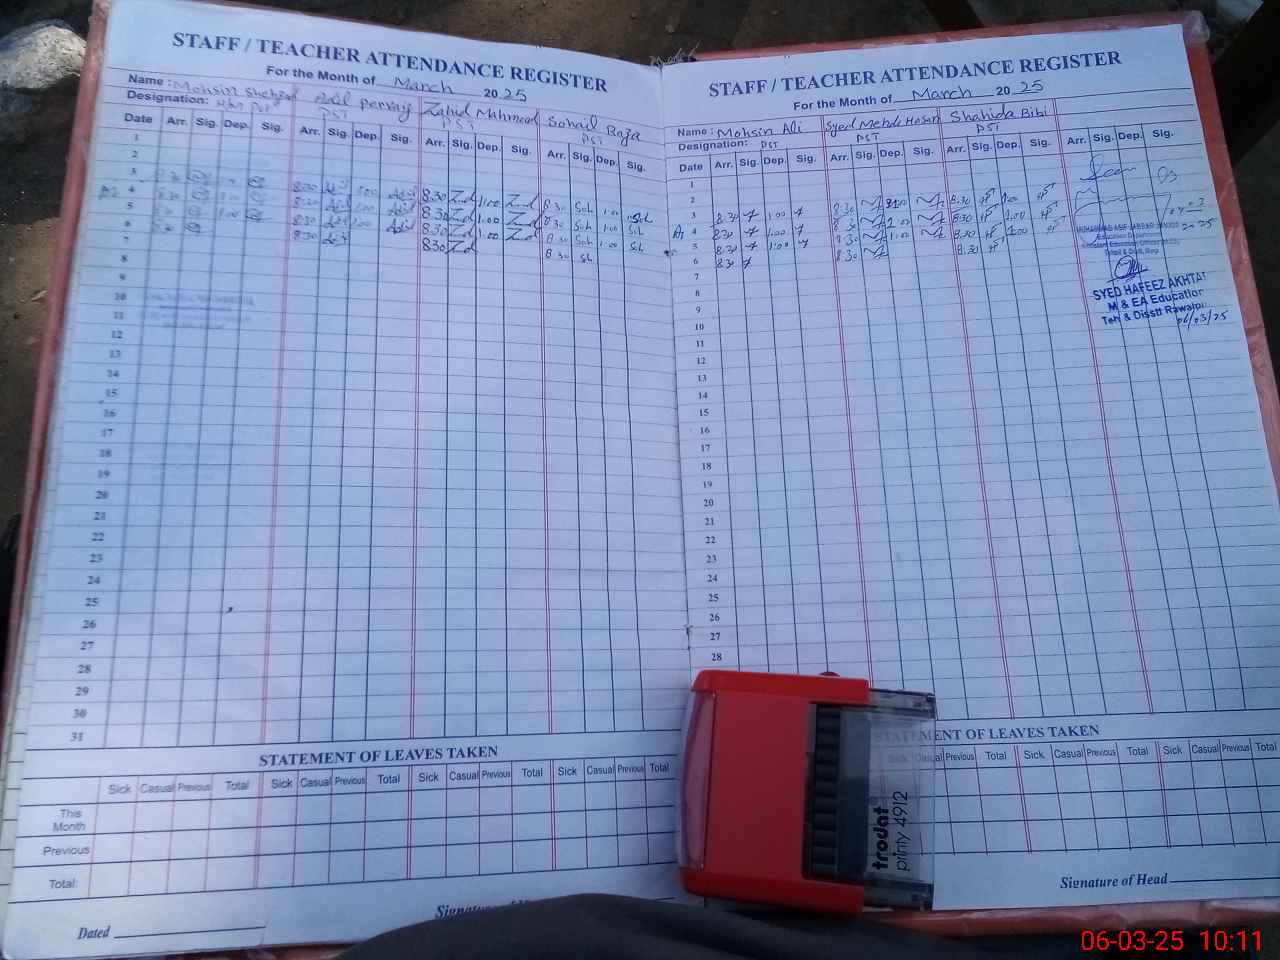 STAFF / TEACHER ATTENDANCE REGISTER
For the Month of March 2025
Name: Mohsin Shehzad Adil pervaiz Zahid Mahmood Sohail Raja
Designation: PST PST PST
Date Arr. Sig. Dep. Sig. Arr. Sig. Dep. Sig. Arr. Sig. Dep. Sig. Arr. Sig. Dep. Sig.
1
2
3 8.30 8:30 Adil 1:00 Adil 8.30 Zad 1.00 Zad 8.30 Soh 1.00 Soh
4 8.30 8:30 Adil 1:00 Adil 8.30 Zad 1.00 Zad 8.30 Soh 1.00 Soh
5 8.30 1.00 8:30 Adil 1:00 Adil 8.30 Zad 1.00 Zad 8.30 Soh 1.00 Soh
6 8.30 8:30 Adil 8.30 Zad 8.30 Soh
7
8
9
10
11
12
13
14
15
16
17
18
19
20
21
22
23
24
25
26
27
28
29
30
31
STATEMENT OF LEAVES TAKEN
Sick Casual Previous Total Sick Casual Previous Total Sick Casual Previous Total Sick Casual Previous Total
This Month
Previous
Total:
Dated
STAFF / TEACHER ATTENDANCE REGISTER
For the Month of March 2025
Name: Mohsin Ali Syed Mehdi Hasan Shahida Bibi
Designation: PST PST PST
Date Arr. Sig. Dep. Sig. Arr. Sig. Dep. Sig. Arr. Sig. Dep. Sig. Arr. Sig. Dep. Sig.
1
2
3 8.30 1.00 8.30 8.30 1.00
4 8.30 1.00 8.30 1.00 8.30 1.00
5 8.30 1.00 8.30 1.00 8.30 1.00
6 8.30 8.30 8.30
7
8
9
10
11
12
13
14
15
16
17
18
19
20
21
22
23
24
25
26
27
28
SYED HAFEEZ AKHTAR
M & EA Education
Teh & Distt Rawalpi
06/03/25
STATEMENT OF LEAVES TAKEN
Sick Casual Previous Total Sick Casual Previous Total Sick Casual Previous Total
Signature of Head
trodat
printy 4912
06-03-25 10:11